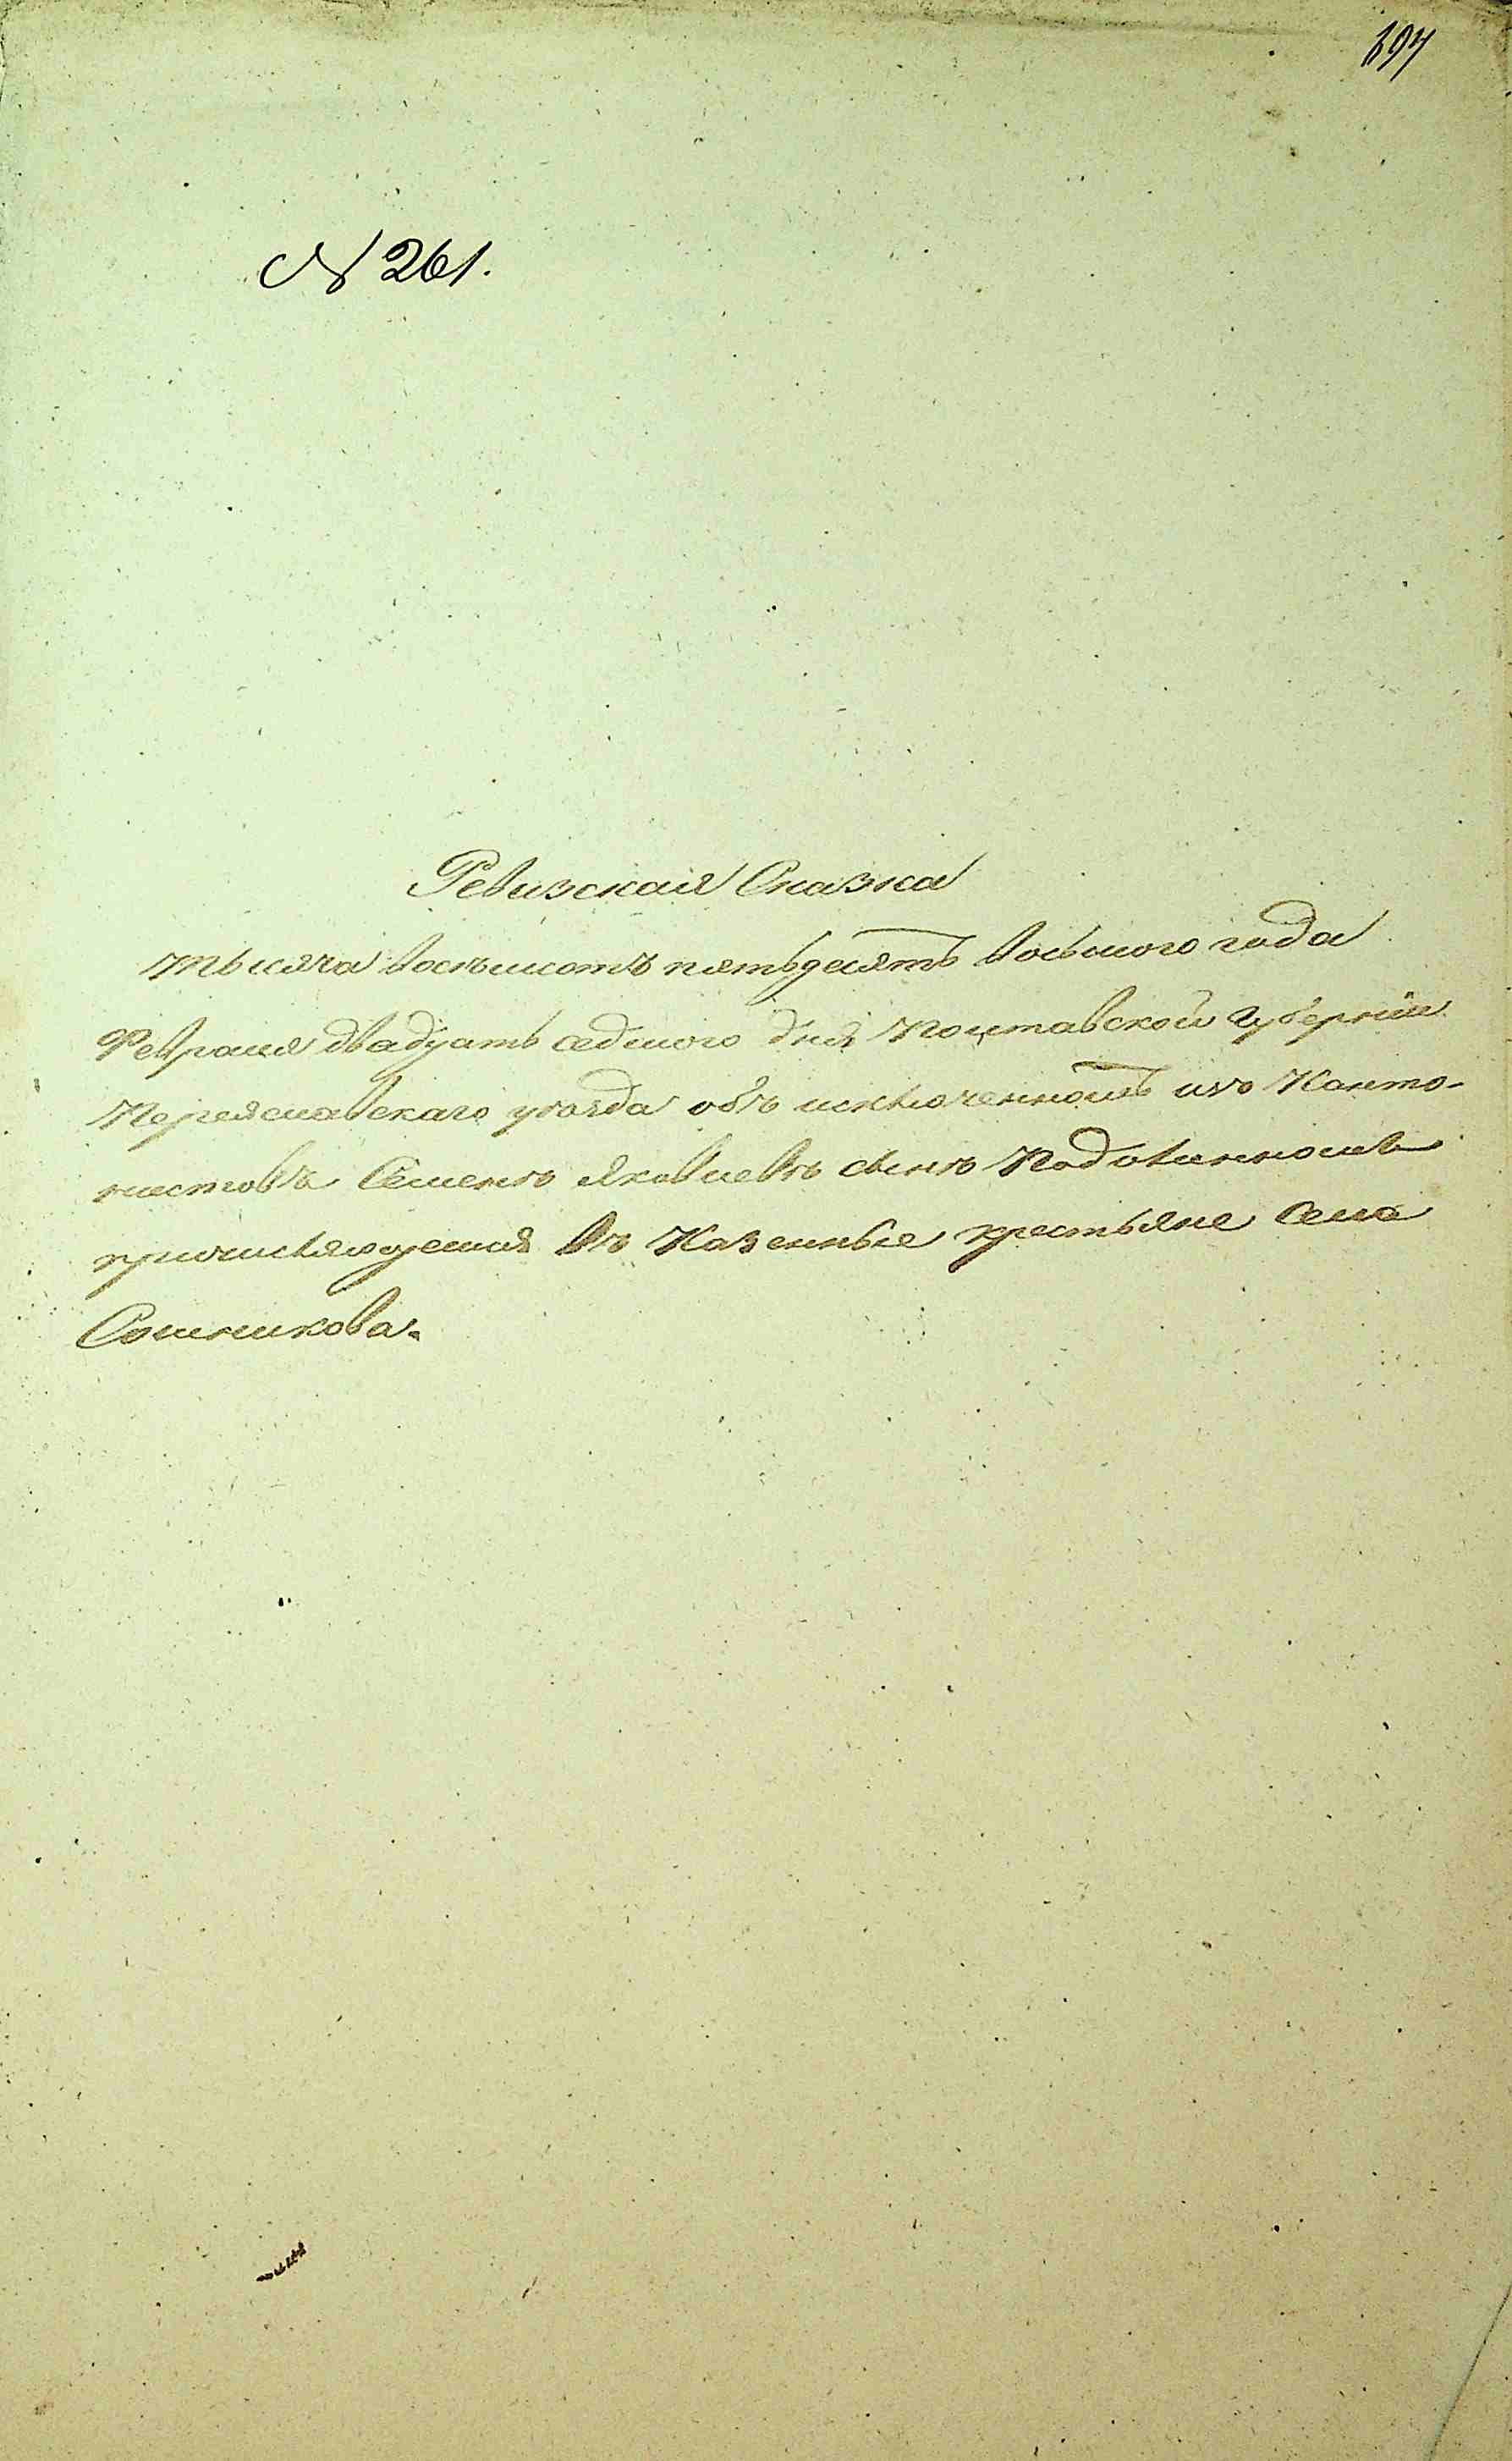 697
№ 261.
Ревизская Сказка
тысяча восемьсотъ пятьдесятъ восьмого года
Февраля двадцать седмого дня Полтавской Губернии
Переяславскаго уѣзда объ исключенномъ изъ Канто-
нистовъ Семенъ Яковлевъ сынъ
причисляющемся въ Казенные крестьяне Села
Сошникова.